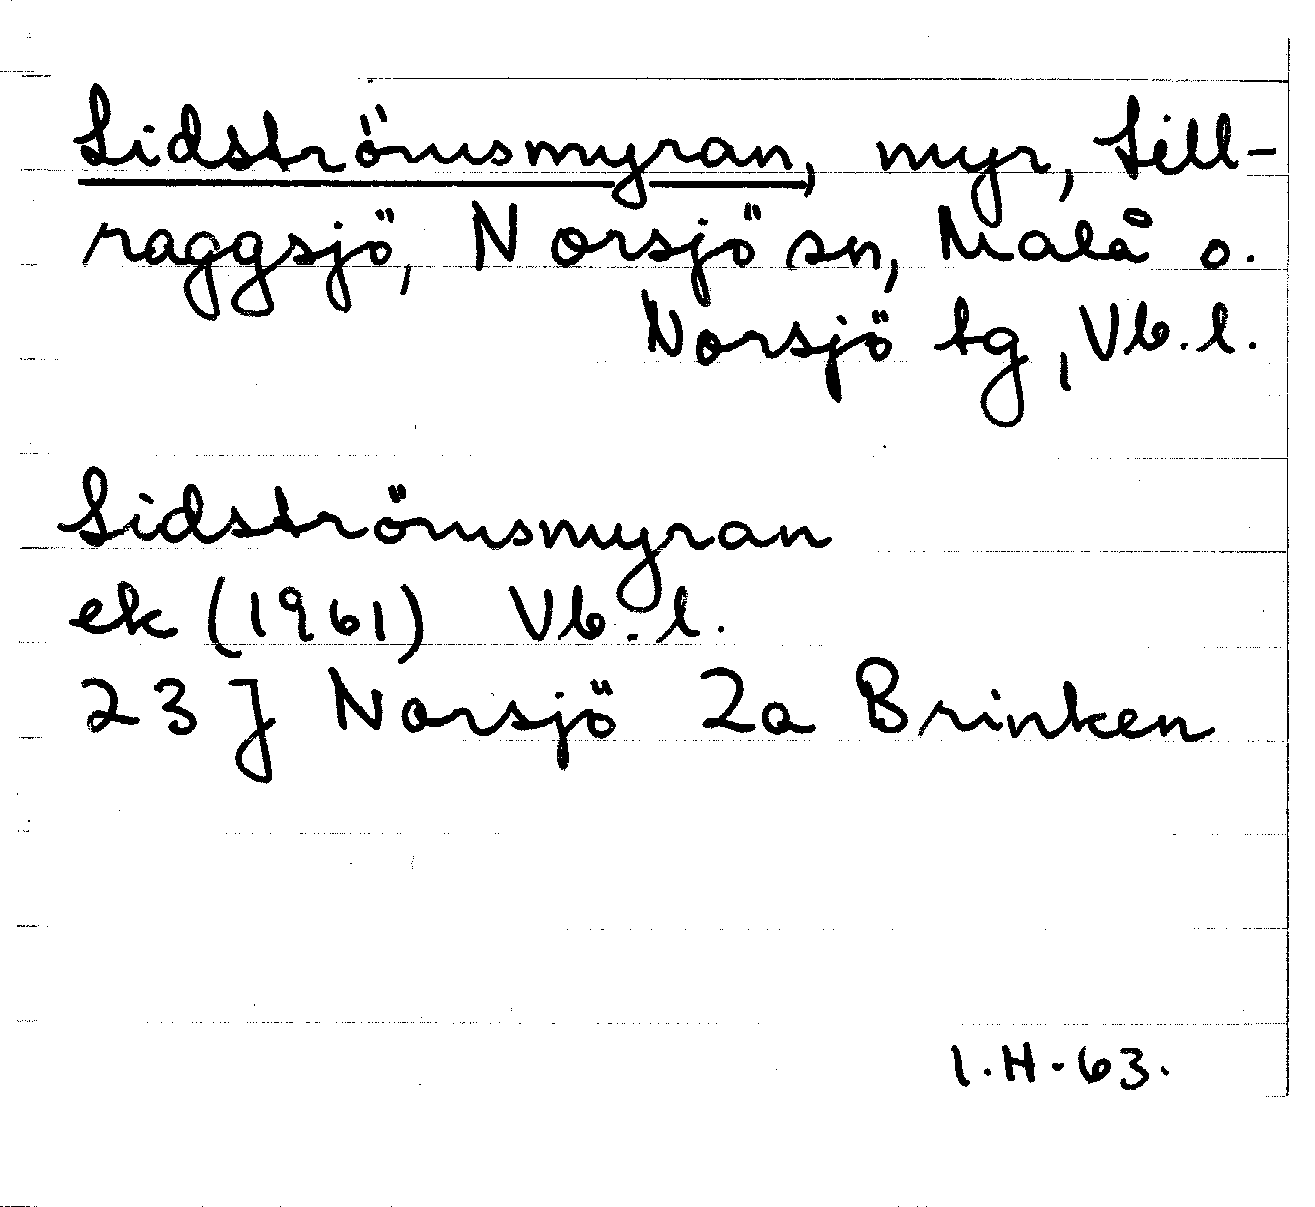 Lidströmsmyran, myr, Lill-
raggsjö, Norsjö sn, Malå o.
Norsjö tg, Vb.l.
Lidströmsmyran
ek (1961) Vb.l.
23 J Norsjö 2a Brinken
I.H.63.